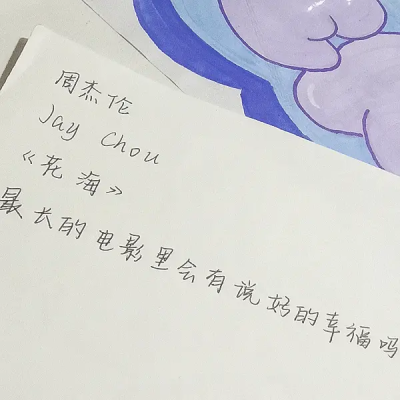 周杰伦
Jay Chou
《花海》
最长的电影里会有说好的幸福吗